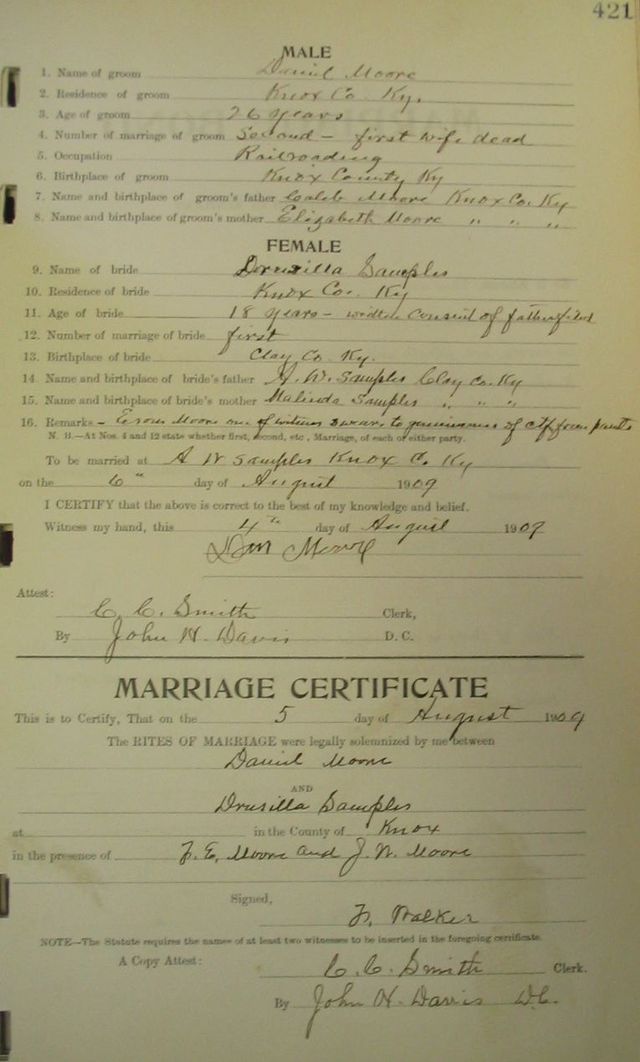 421
MALE
1. Name of groom Daniel Moore
2. Residence of groom Knox Co. Ky.
3. Age of groom 26 years
4. Number of marriage of groom Second - first wife dead
5. Occupation Railroading
6. Birthplace of groom Knox County Ky
7. Name and birthplace of groom's father Caleb Moore Knox Co. Ky
8. Name and birthplace of groom's mother Elizabeth Moore " " "
FEMALE
9. Name of bride Drusilla Samples
10. Residence of bride Knox Co. Ky
11. Age of bride 18 years - written consent of father filed
12. Number of marriage of bride first
13. Birthplace of bride Clay Co. Ky.
14 Name and birthplace of bride's father A. W. Samples Clay Co. Ky
15. Name and birthplace of bride's mother Malinda Samples " " "
16. Remarks - Moore one of witness swears to genuineness of ctf from parents
N. B.—At Nos. 4 and 12 state whether first, second, etc., Marriage, of each or either party.
To be married at A W Samples Knox Co. Ky
on the 6" day of August 1909
I CERTIFY that the above is correct to the best of my knowledge and belief.
Witness my hand, this 4" day of August 1909
Dan Moore
Attest:
C. C. Smith Clerk,
By John H. Davis D. C.
MARRIAGE CERTIFICATE
This is to Certify, That on the 5 day of August 1909
The RITES OF MARRIAGE were legally solemnized by me between
Daniel Moore
AND
Drusilla Samples
at in the County of Knox
in the presence of F. E. Moore and J. W. Moore
Signed,
F. Walker
NOTE—The Statute requires the names of at least two witnesses to be inserted in the foregoing certificate.
A Copy Attest: C. C. Smith Clerk.
By John H. Davis D.C.